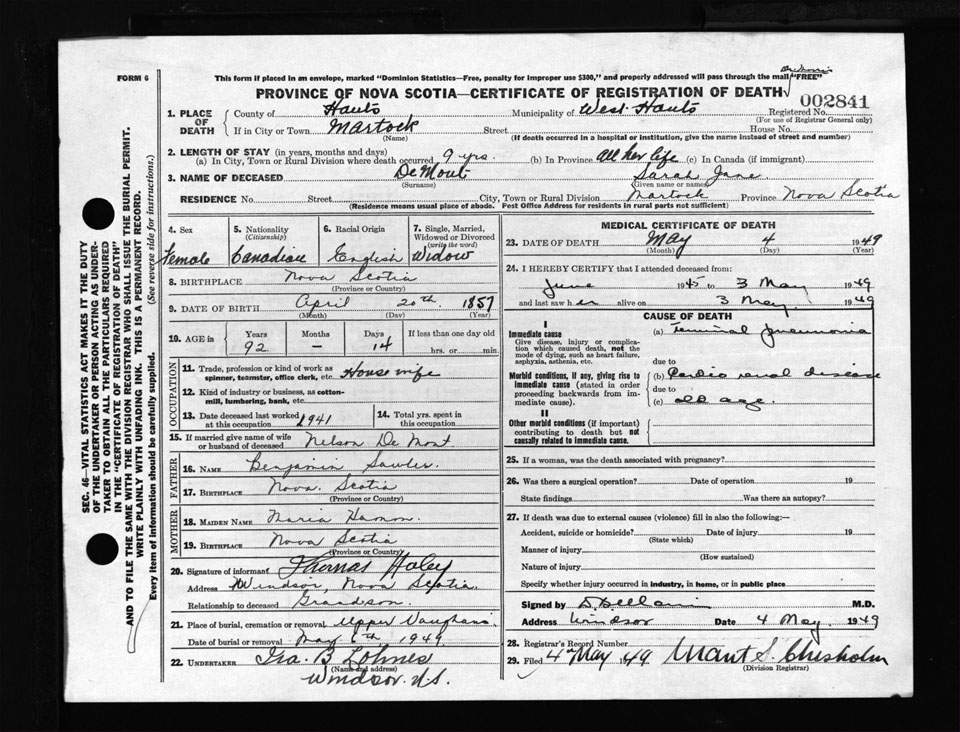 FORM 6
This form if placed in an envelope, marked "Dominion Statistics—Free, penalty for improper use $300," and properly addressed will pass through the mail "FREE"
PROVINCE OF NOVA SCOTIA—CERTIFICATE OF REGISTRATION OF DEATH
002841
1. PLACE OF DEATH
County of Hants Municipality of West Hants Registered No.
(For use of Registrar General only)
If in City or Town Martock Street House No.
(Name) (If death occurred in a hospital or institution, give the name instead of street and number)
2. LENGTH OF STAY (in years, months and days)
(a) In City, Town or Rural Division where death occurred 9 yrs. (b) In Province all her life (c) In Canada (if immigrant)
3. NAME OF DECEASED DeMont Sarah Jane
(Surname) (Given name or names)
RESIDENCE No. Street City, Town or Rural Division Martock Province Nova Scotia
(Residence means usual place of abode. Post Office Address for residents in rural parts not sufficient)
4. Sex Female
5. Nationality (Citizenship) Canadian
6. Racial Origin English
7. Single, Married, Widowed or Divorced (write the word) Widow
8. BIRTHPLACE Nova Scotia
(Province or Country)
9. DATE OF BIRTH April 20th. 1857
(Month) (Day) (Year)
10. AGE in Years Months Days If less than one day old
92 — 14 hrs. or min.
OCCUPATION
11. Trade, profession or kind of work as spinner, teamster, office clerk, etc. Housewife
12. Kind of industry or business, as cotton-mill, lumbering, bank, etc.
13. Date deceased last worked at this occupation 1941
14. Total yrs. spent in this occupation
15. If married give name of wife or husband of deceased Nelson De Mont
FATHER
16. NAME Benjamin Sawler
17. BIRTHPLACE Nova Scotia
(Province or Country)
MOTHER
18. MAIDEN NAME Maria Hamon
19. BIRTHPLACE Nova Scotia
(Province or Country)
20. Signature of informant Thomas Haley
Address Windsor, Nova Scotia
Relationship to deceased Grandson.
21. Place of burial, cremation or removal Upper Vaughans
Date of burial or removal May 6th 1949
22. UNDERTAKER Ira. B Lohnes
(Name and address)
Windsor. N.S.
MEDICAL CERTIFICATE OF DEATH
23. DATE OF DEATH May 4 1949
(Month) (Day) (Year)
24. I HEREBY CERTIFY that I attended deceased from:
June 1945 to 3 May 1949
and last saw her alive on 3 May 1949
CAUSE OF DEATH
I
Immediate cause (a) Terminal pneumonia
Give disease, injury or complication which caused death, not the mode of dying, such as heart failure, asphyxia, asthenia, etc.
due to
Morbid conditions, if any, giving rise to immediate cause (stated in order proceeding backwards from immediate cause).
(b) Cardio renal disease
due to
(c) old age.
II
Other morbid conditions (if important) contributing to death but not causally related to immediate cause.
25. If a woman, was the death associated with pregnancy?
26. Was there a surgical operation? Date of operation 19
State findings Was there an autopsy?
27. If death was due to external causes (violence) fill in also the following:—
Accident, suicide or homicide? Date of injury 19
(State which)
Manner of injury
(How sustained)
Nature of injury
Specify whether injury occurred in industry, in home, or in public place
Signed by M.D.
Address Windsor Date 4 May. 1949
28. Registrar's Record Number
29. Filed 4 May 1949 Chisholm
(Division Registrar)
SEC. 46—VITAL STATISTICS ACT MAKES IT THE DUTY
OF THE UNDERTAKER OR PERSON ACTING AS UNDER-
TAKER TO OBTAIN ALL THE PARTICULARS REQUIRED
IN THE "CERTIFICATE OF REGISTRATION OF DEATH"
AND TO FILE THE SAME WITH THE DIVISION REGISTRAR WHO SHALL ISSUE THE BURIAL PERMIT.
WRITE PLAINLY WITH UNFADING INK. THIS IS A PERMANENT RECORD.
Every item of information should be carefully supplied. (See reverse side for instructions.)